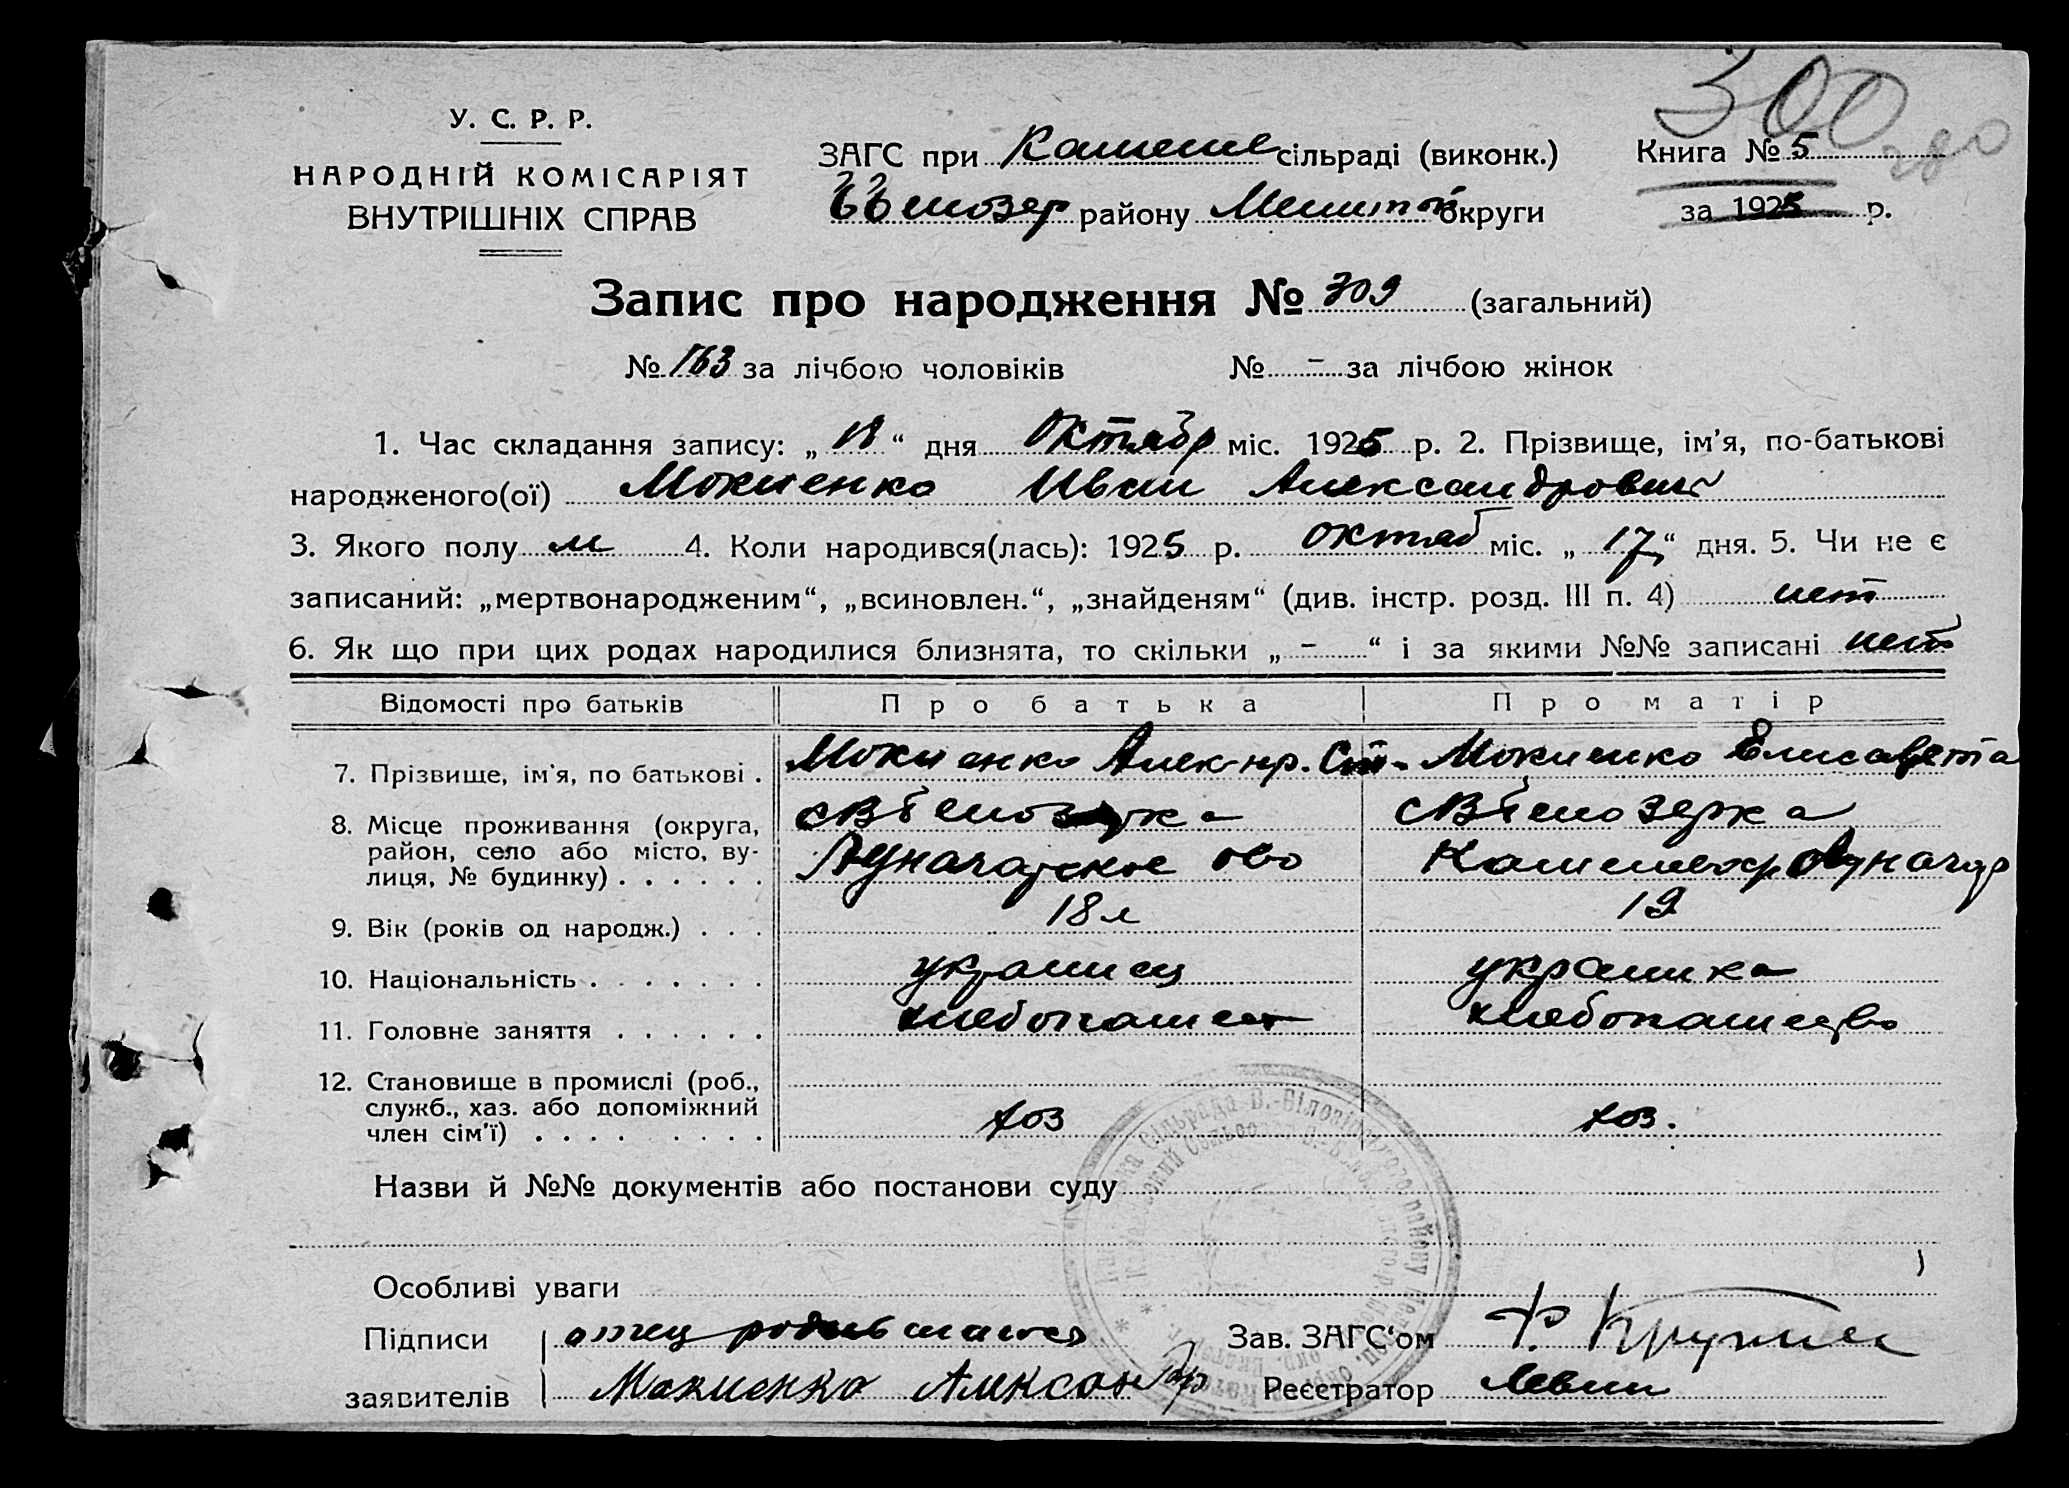 300
У. С. Р. Р.
НАРОДНІЙ КОМІСАРІЯТ
ВНУТРІШНІХ СПРАВ
ЗАГС при сільраді (виконк.)
району округи
Книга № 5
за 1925 р.
Запис про народження № 309 (загальний)
№ 163 за лічбою чоловіків № – за лічбою жінок
1. Час складання запису: „ 18 “ дня Октябр міс. 1925 р. 2. Прізвище, ім'я, по-батькові
народженого(ої) Мокиенко Иван Александрович
3. Якого полу м 4. Коли народився(лась): 1925 р. октяб міс. „ 17 “ дня. 5. Чи не є
записаний: „мертвонародженим“, „всиновлен.“, „знайденям“ (див. інстр. розд. III п. 4) нет
6. Як що при цих родах народилися близнята, то скільки „ – “ і за якими №№ записані нет
Відомості про батьків Про батька Про матір
7. Прізвище, ім'я, по батькові . Мокиенко Алек-нр. Ст. Мокиенко Елисавета
8. Місце проживання (округа, район, село або місто, вулиця, № будинку) . . . . . .
9. Вік (років од народж.) . . . 18 л 19
10. Національність . . . . . . . украинец украинка
11. Головне заняття . . . . . . хлебопашест хлебопашество
12. Становище в промислі (роб.,
служб., хаз. або допоміжний
член сім'ї) . . . . . . . . хоз хоз.
Назви й №№ документів або постанови суду
Особливі уваги
Підписи отец родившагося Зав. ЗАГС'ом
заявителів Мокиенко Александр Реєстратор Левин